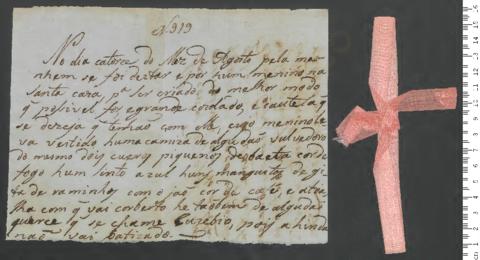 N 919
No dia catorze do Mez de Agosto pela ma-
nhem se foi deitar e por hum menino na
Santa caza, pª ser criado, do melhor modo
q posivel for, e grande coidado, e cautela q
se dezeja q tenhão com elle, cujo menino le
va vestido huma camiza de algudão
do mesmo dois cueyros piquenos de baeta cor de
fogo hum sinto azul huns manguitos de 
ta de raminhos com o cor de café, e atoa
lha com q vai corberto he taobem de algudão
querce q se chame Euzebio, pois a hinda
naõ vai batizado.